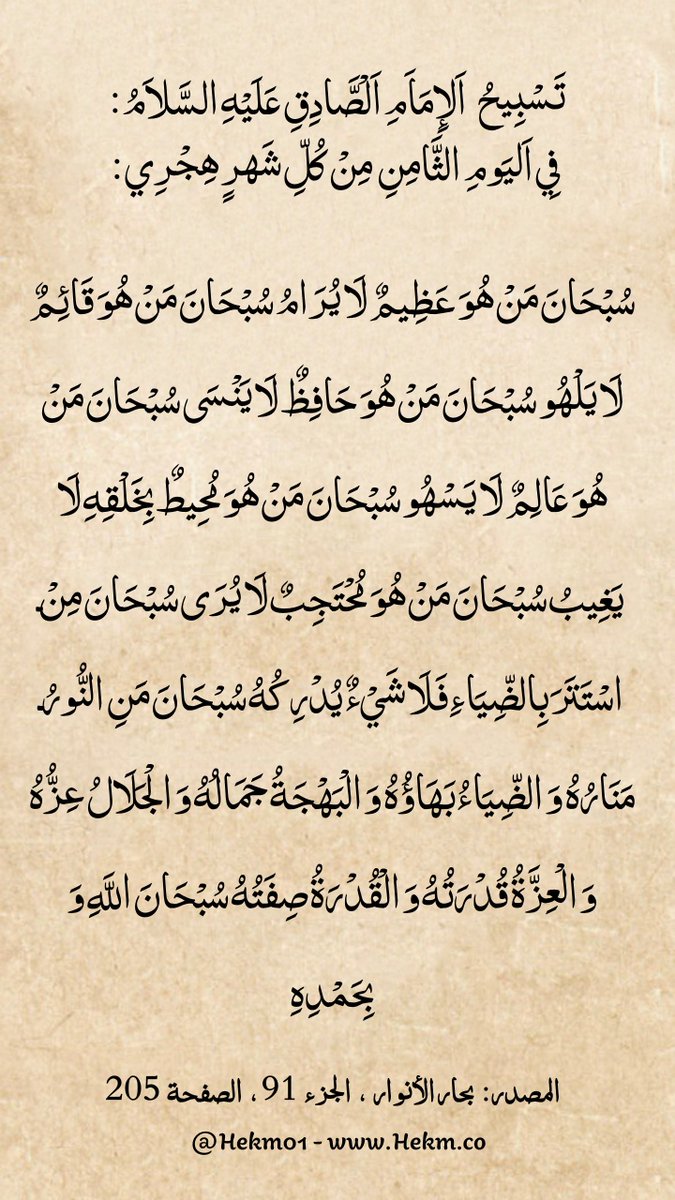 تَسْبِيحُ اَلإِمَاَمِ اَلْصَّادِقِ عَلَيْهِ السَّلاَمُ :
فِي اَليَومِ الثَّامِنِ مِنْ كُلِّ شَهرٍ هِجْرِي :
سُبْحَانَ مَنْ هُوَ عَظِيمٌ لَا يُرَامُ سُبْحَانَ مَنْ هُوَ قَائِمٌ
لَا يَلْهُو سُبْحَانَ مَنْ هُوَ حَافِظٌ لَا يَنْسَى سُبْحَانَ مَنْ
هُوَ عَالِمٌ لَا يَسْهُو سُبْحَانَ مَنْ هُوَ مُحِيطٌ بِخَلْقِهِ لَا
يَغِيبُ سُبْحَانَ مَنْ هُوَ مُحْتَجِبٌ لَا يُرَى سُبْحَانَ مِنْ
اسْتَتَرَ بِالضِّيَاءِ فَلَا شَيْءٌ يُدْرِكُهُ سُبْحَانَ مَنِ النُّورُ
مَنَارُهُ وَ الضِّيَاءُ بَهَاؤُهُ وَ الْبَهْجَةُ جَمَالُهُ وَ الْجَلَالُ عِزُّهُ
وَ الْعِزَّةُ قُدْرَتُهُ وَ الْقُدْرَةُ صِفَتُهُ سُبْحَانَ اللَّهِ وَ
بِحَمْدِهِ
المصدر: بحار الأنوار ، الجزء 91 ، الصفحة 205
@Hekm01 - www.Hekm.co